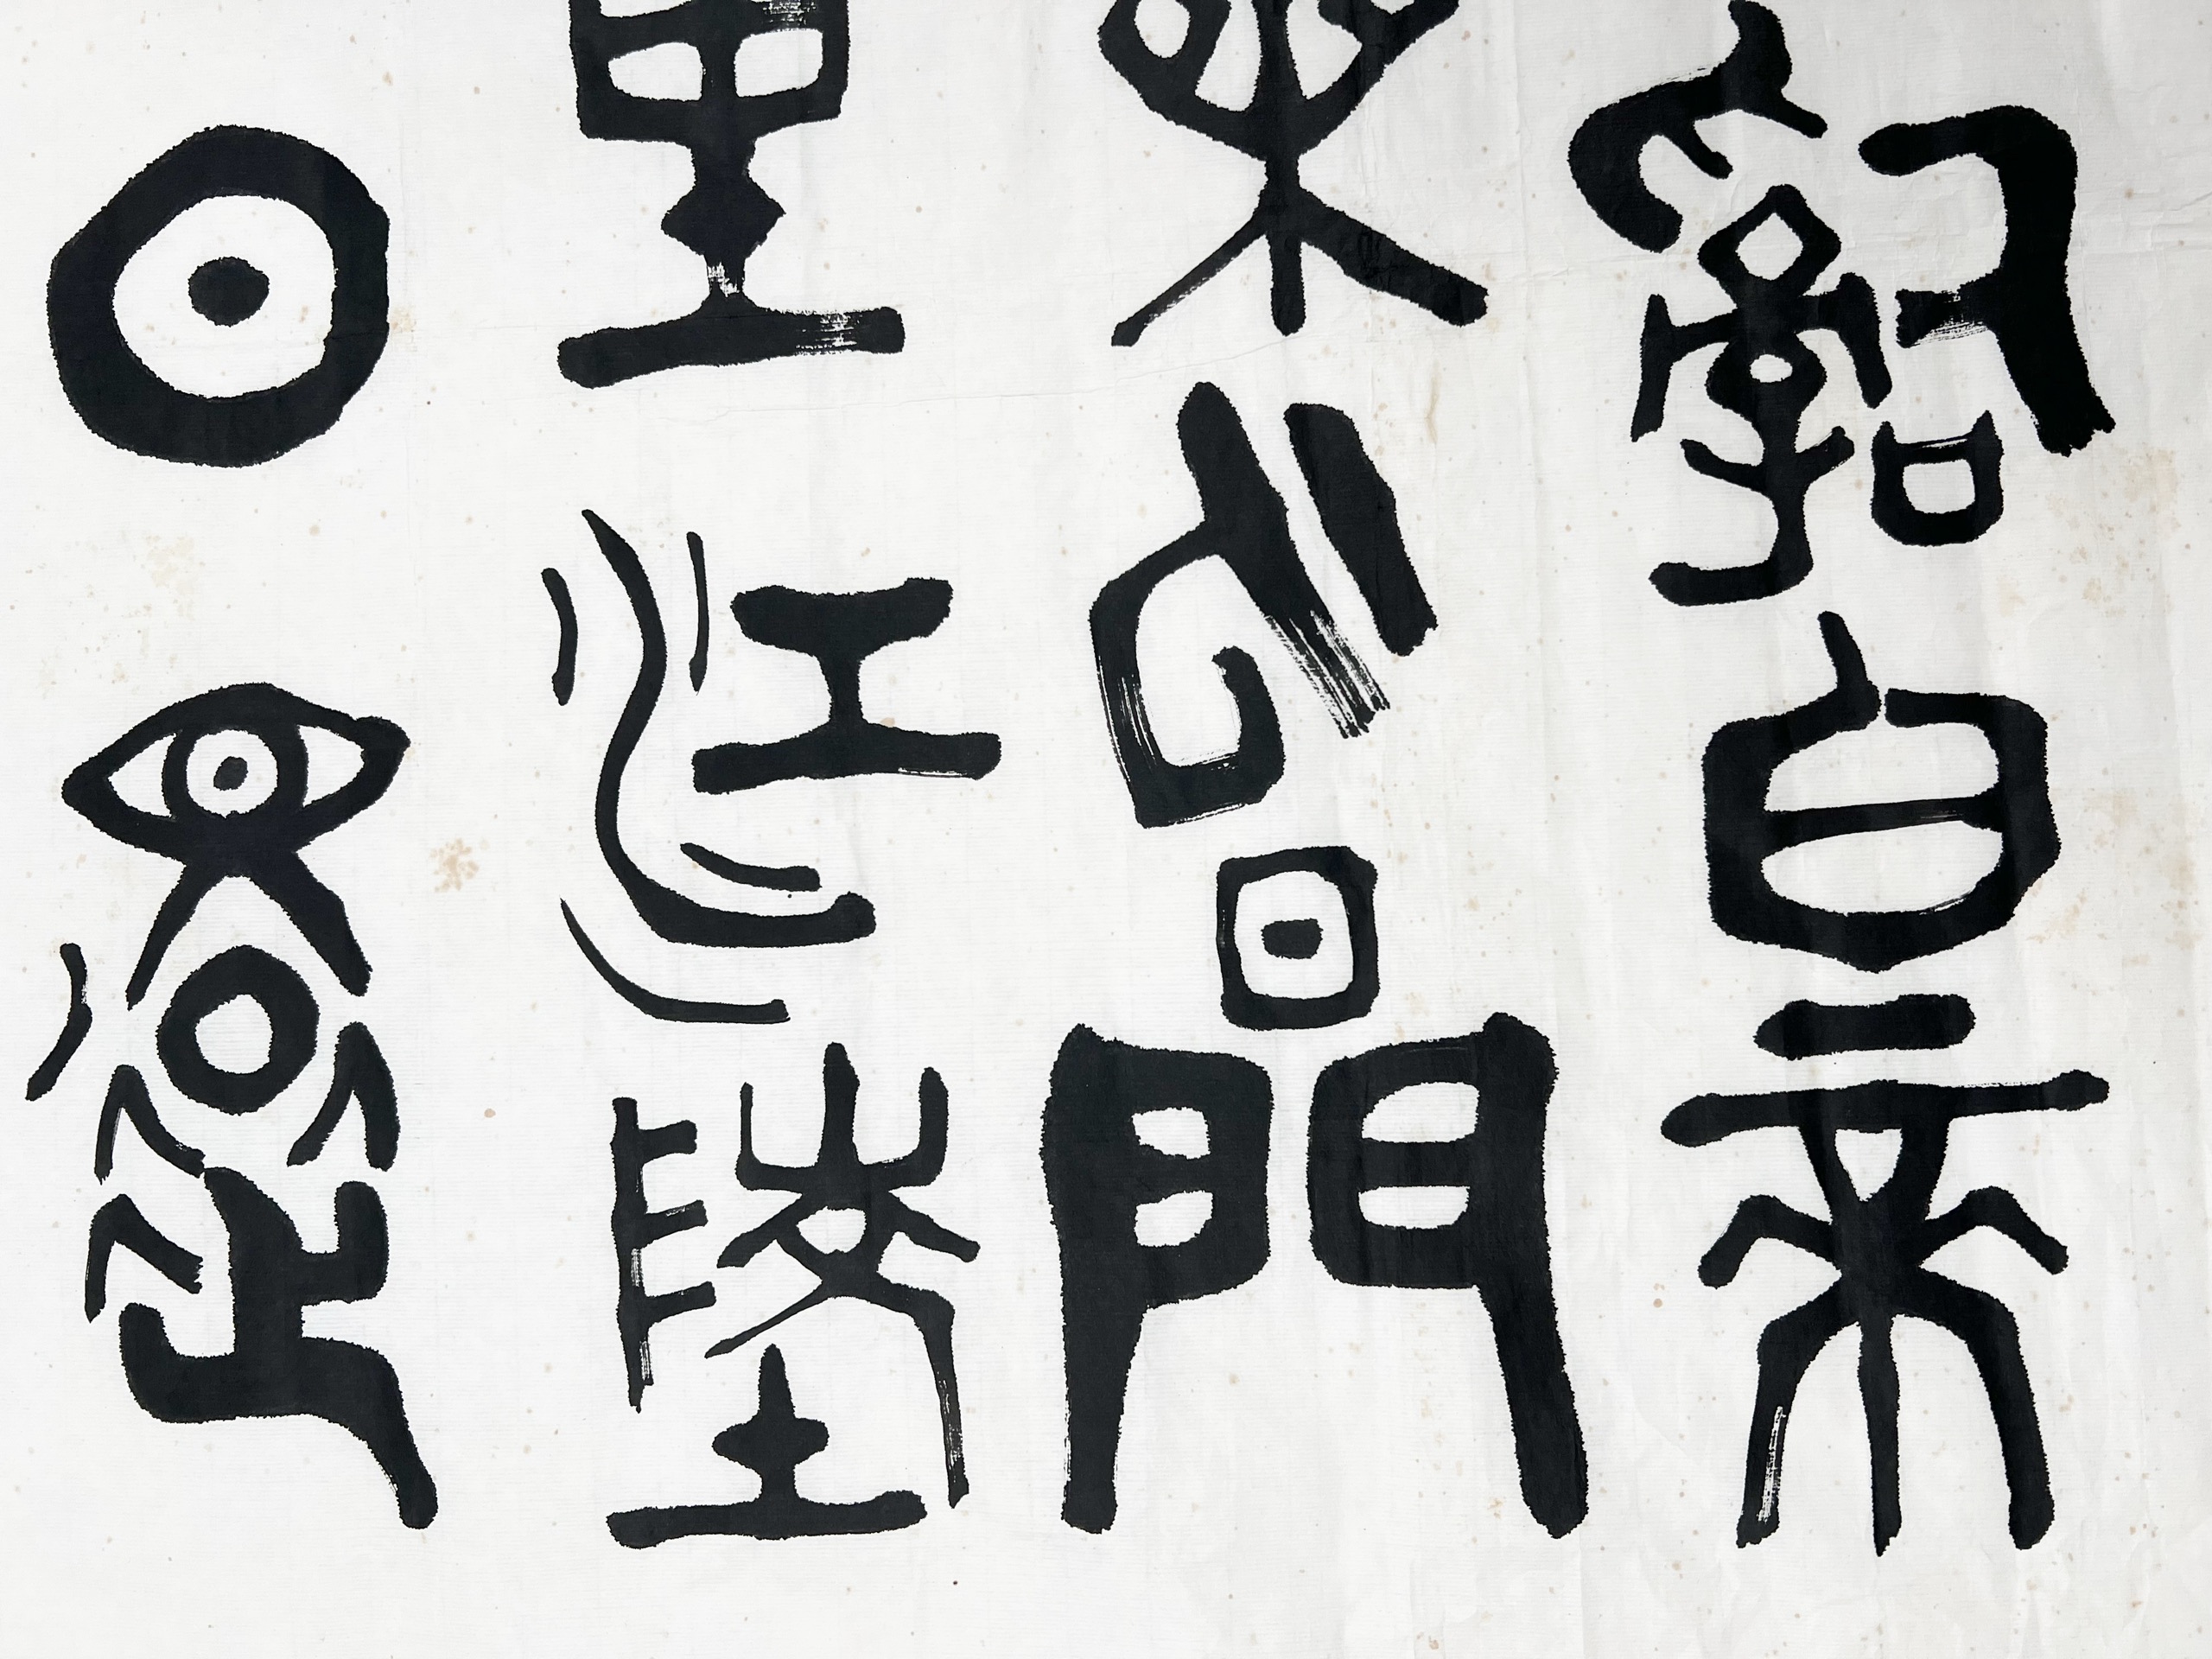 辭白帝
采云間
里江陵
日還